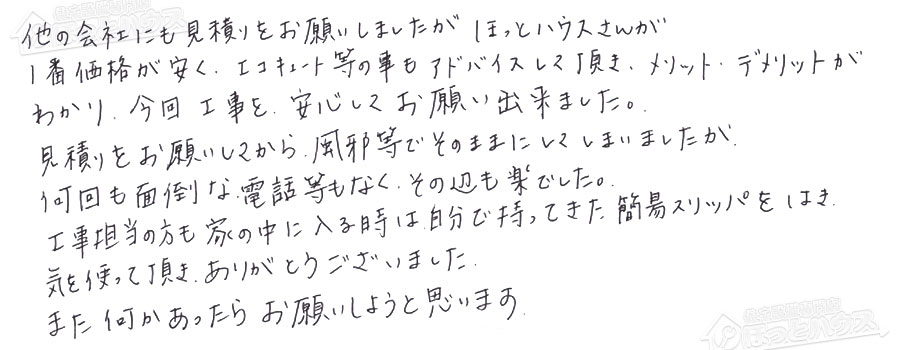 他の会社にも見積りをお願いしましたがほっとハウスさんが
1番価格が安く、エコキュート等の事もアドバイスして頂き、メリット・デメリットが
わかり、今回工事を、安心してお願い出来ました。
見積りをお願いしてから、風邪等でそのままにしてしまいましたが、
何回も面倒な電話等もなく、その辺も楽でした。
工事担当の方も家の中に入る時は自分で持ってきた簡易スリッパをはき、
気を使って頂き、ありがとうございました。
また何かあったらお願いしようと思います。
ほっとハウス